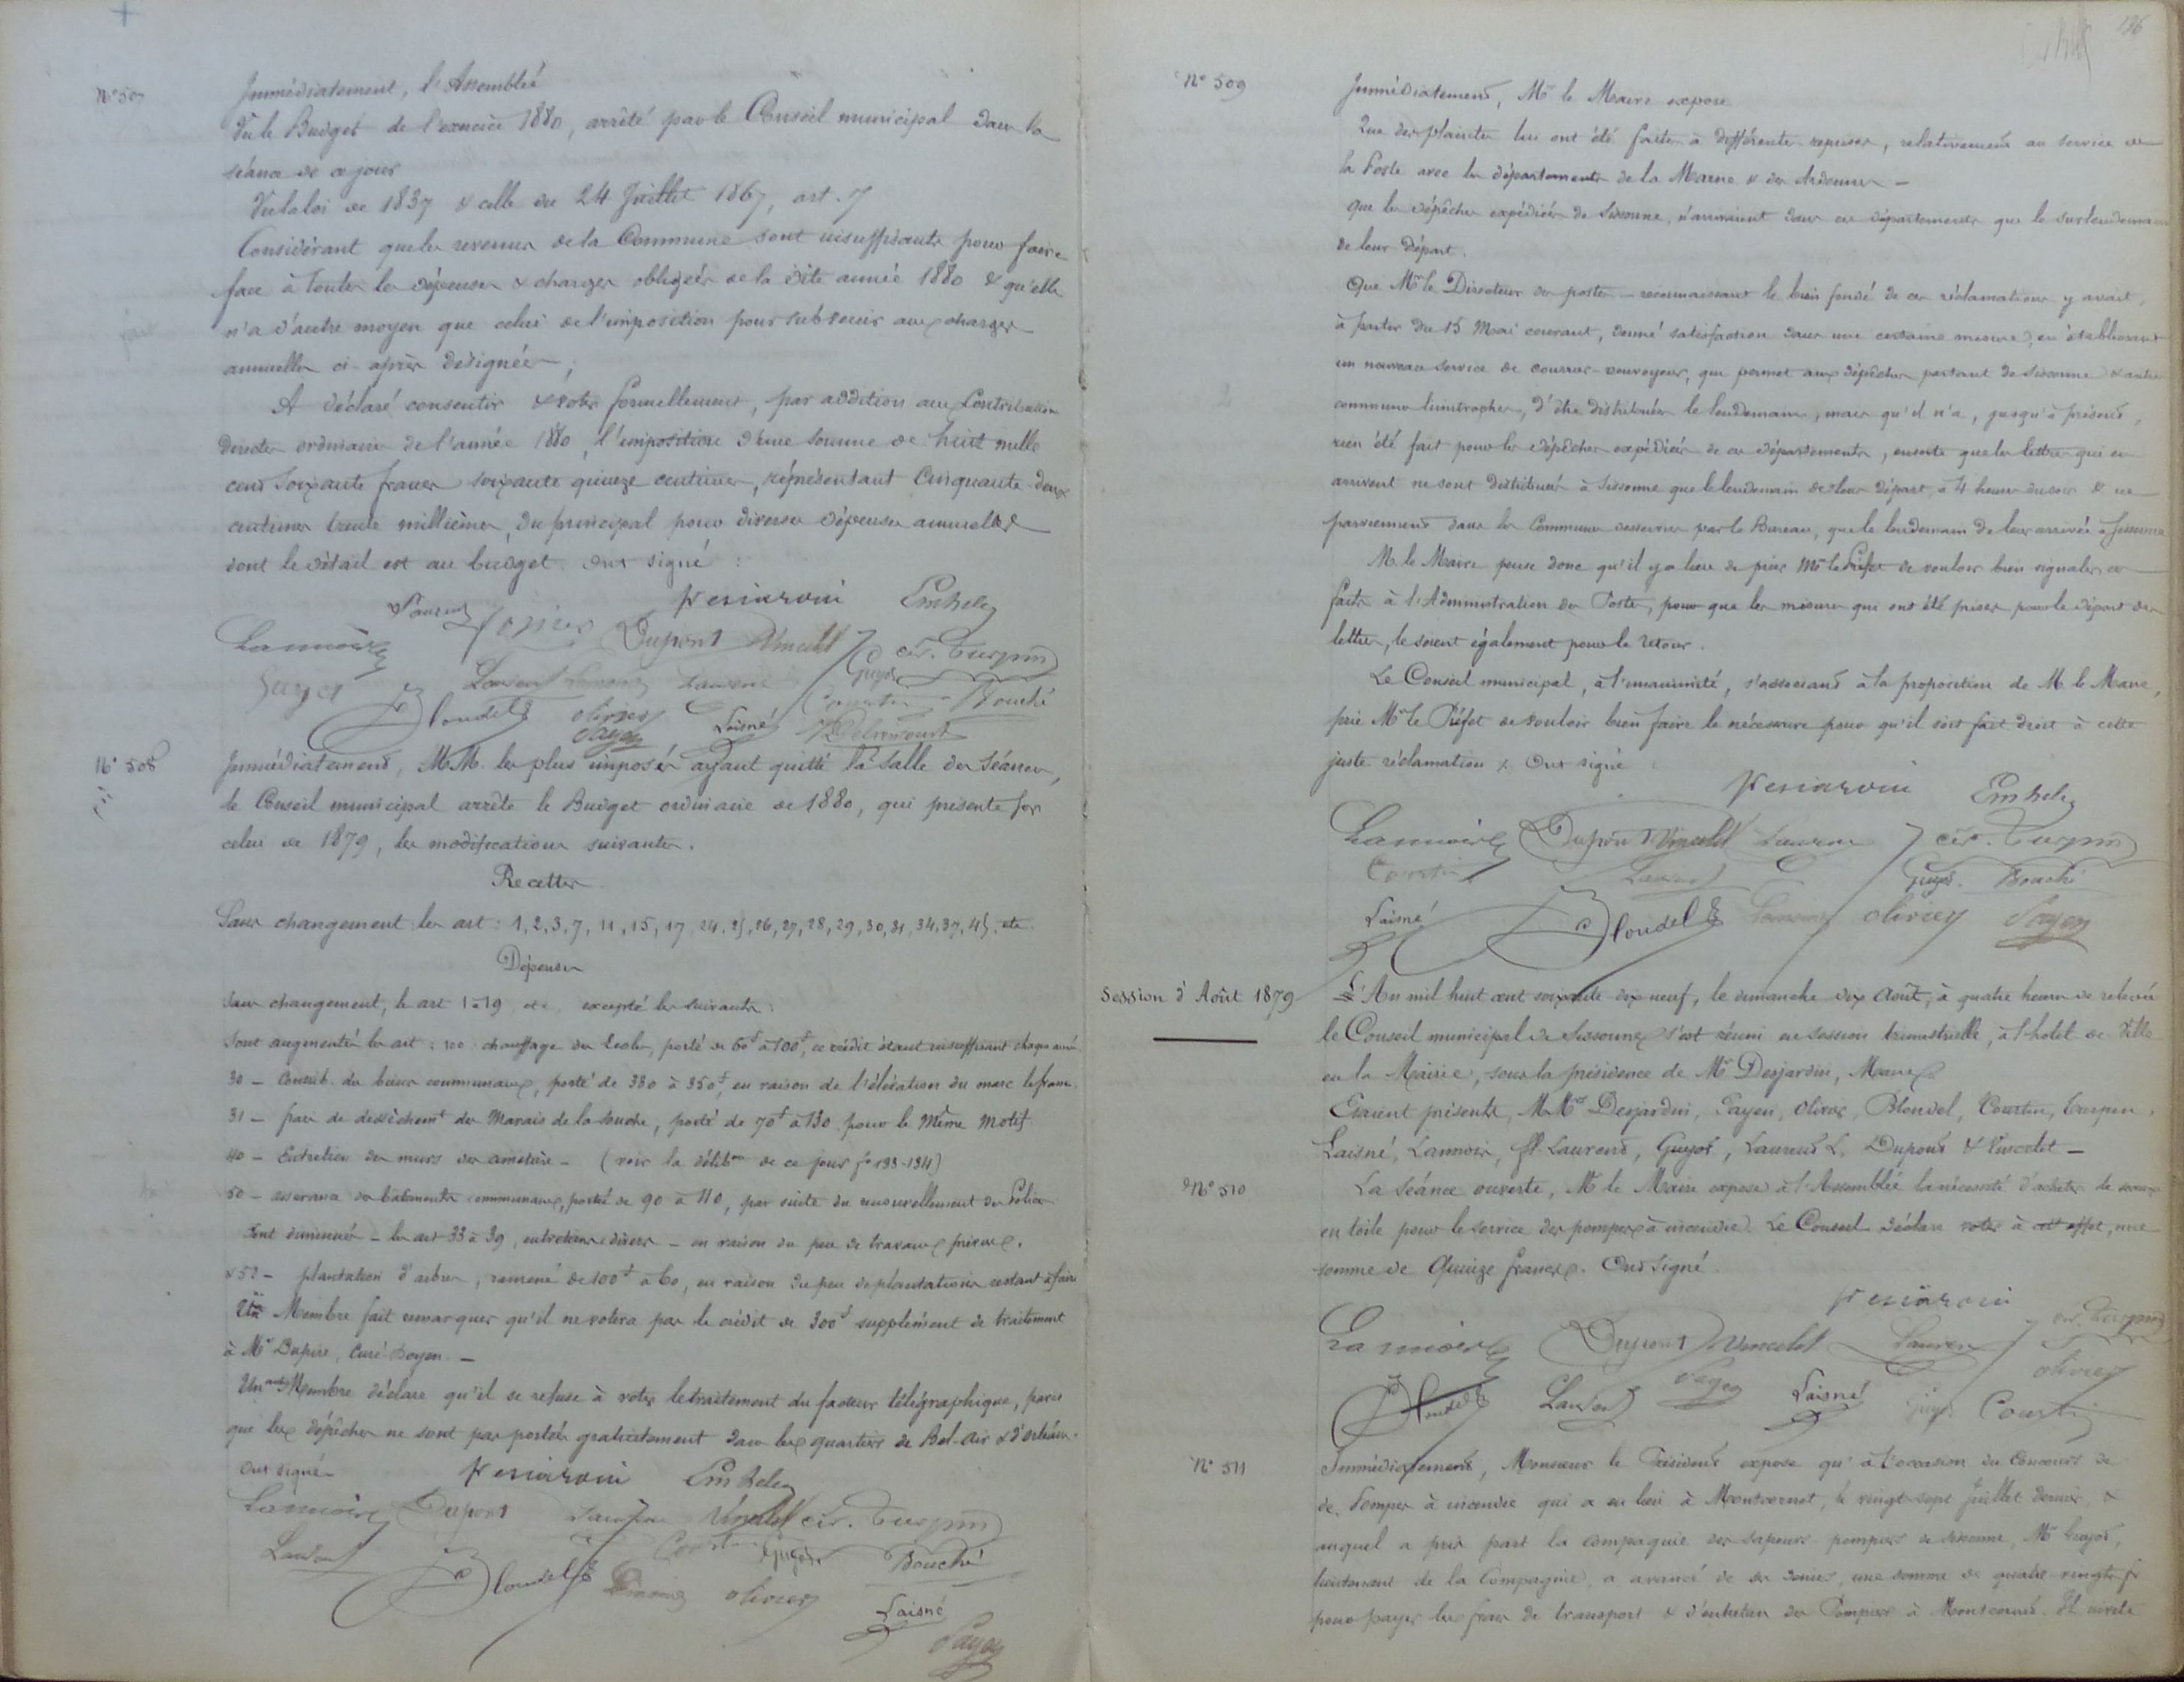 N° 507
Immédiatement, l'Assemblée
Vu le Budget de l'exercice 1880, arrêté par le Conseil municipal dans la
séance de ce jour
Vu la loi de 1837 & celle du 24 Juillet 1867, art. 7
Considérant que les revenus de la Commune sont insuffisants pour faire
face à toutes les dépenses & charges obligées de la dite année 1880 & qu'elle
n'a d'autre moyen que celui de l'imposition pour subvenir aux charges
annuelles ci-après désignées;
A déclaré consentir & voter formellement, par addition aux Contributions
directes ordinaires de l'année 1880, l'imposition d'une somme de huit mille
cent soixante francs soixante quinze centimes, représentant Cinquante deux
centimes trente millièmes, du principal pour diverses dépenses annuelles
dont le détail est au budget. Ont signé :
Desjardin Laurent Dupont Vincelet Cés. Turpin
Lannoire Guyot Laurent Courtin Bouché
Blondel Olivier Payen Laisné
N° 508
Immédiatement, MM. les plus imposés ayant quitté la salle des séances,
le Conseil municipal arrête le Budget ordinaire de 1880, qui présente sur
celui de 1879, les modifications suivantes.
Recettes
Sans changement les art : 1, 2, 3, 7, 11, 15, 17, 24, 25, 26, 27, 28, 29, 30, 31, 34, 37, 45, etc.
Dépenses
Sans changement, les art 1 à 19 etc. excepté les suivants :
Sont augmentés les art : chauffage des Ecoles, porté de 60f à 100f, ce crédit étant insuffisant chaque année
30 — Contrib. des biens communaux, porté de 330 à 350f, en raison de l'élévation du marc le franc.
31 — frais de dessèchemt des Marais de la Souche, porté de 70f à 130 pour le même motif
40 — Entretien des murs du cimetière — (voir la délibon de ce jour fo 133-134)
50 — assurance des bâtiments communaux, portée de 90 à 110, par suite du renouvellement des Polices
Sont diminués — les art 33 à 39, entretiens divers — en raison du peu de travaux prévus.
& 52 — plantation d'arbres, ramené de 100f à 60, en raison du peu de plantations restant à faire
Un Membre fait remarquer qu'il ne votera pas le crédit de 300f supplément de traitement
à Mr Dupire, Curé Doyen —
Un autre Membre déclare qu'il se refuse à voter le traitement du facteur télégraphique, parce
que les dépêches ne sont pas portées gratuitement dans les quartiers de Bel-Air & d'Orléans.
Ont signé
Desjardin
Lannoire Dupont Vincelet Cés. Turpin
Laurent Courtin Guyot Bouché
Blondel Olivier Laisné
Payen
136
N° 509
Immédiatement, Mr le Maire expose
Que des plaintes lui ont été faites à différentes reprises, relativement au service de
la Poste avec les départements de la Marne & des Ardennes —
Que les dépêches expédiées de Sissonne, n'arrivaient dans ces départements que le surlendemain
de leur départ.
Que Mr le Directeur des postes — reconnaissant le bien fondé de ces réclamations y avait,
à partir du 15 Mai courant, donné satisfaction dans une certaine mesure, en établissant
un nouveau service de courrier-convoyeur, qui permet aux dépêches partant de Sissonne & autres
communes limitrophes, d'être distribuées le lendemain, mais qu'il n'a, jusqu'à présent,
rien été fait pour les dépêches expédiées de ces départements, ensorte que les lettres qui en
arrivent ne sont distribuées à Sissonne que le lendemain de leur départ, à 4 heures du soir & ne
parviennent dans les Communes desservies par le Bureau, que le lendemain de leur arrivée à Sissonne
M. le Maire pense donc qu'il y a lieu de prier Mr le Préfet de vouloir bien signaler ces
faits à l'Administration des Postes, pour que les mesures qui ont été prises pour le départ des
lettres, le soient également pour le retour.
Le Conseil municipal, à l'unanimité, s'associant à la proposition de M. le Maire,
prie Mr le Préfet de vouloir bien faire le nécessaire pour qu'il soit fait droit à cette
juste réclamation & Ont signé
Desjardin
Lannoire Dupont Vincelet Laurent Cés. Turpin
Courtin Laurent Guyot Bouché
Laisné Blondel Olivier Payen
Session d'Août 1879
L'An mil huit cent soixante dix neuf, le dimanche dix Août, à quatre heures de relevée
le Conseil municipal de Sissonne s'est réuni en session trimestrielle, à l'hotel de Ville
en la Mairie, sous la présidence de Mr Desjardin, Maire
Etaient présents, MMrs Desjardin, Payen, Olivier, Blondel, Courtin, Turpin,
Laisné, Lannoir, Laurent, Guyot, Laurent L. Dupont & Vincelet —
N° 510
La séance ouverte, Mr le Maire expose à l'Assemblée la nécessité d'acheter de seaux
en toile pour le service des pompes à incendie. Le Conseil déclare voter à cet effet, une
somme de Quinze francs. Ont Signé
Desjardin
Lannoire Dupont Vincelet Laurent Cés. Turpin
Blondel Laurent Payen Laisné Guyot Courtin Olivier
N° 511
Immédiatement, Monsieur le Président expose qu'à l'occasion du Concours de
de Pompes à incendie qui a eu lieu à Montcornet, le vingt-sept Juillet dernier &
auquel a pris part la compagnie des sapeurs-pompiers de Sissonne, Mr Guyot,
lieutenant de la Compagnie, a avancé de ses deniers, une somme de quatre-vingts fr
pour payer les frais de transport & d'entretien des Pompiers à Montcornet. Il invite